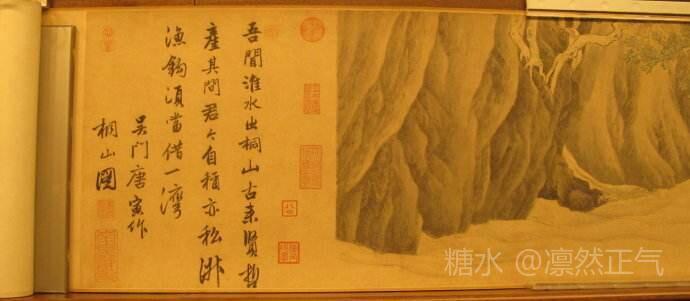 吾聞淮水出桐山古來賢哲
產其間君今自稱亦私淑
漁鈎須當借一灣
吳門唐寅作
桐山圖
糖水 @凛然正气